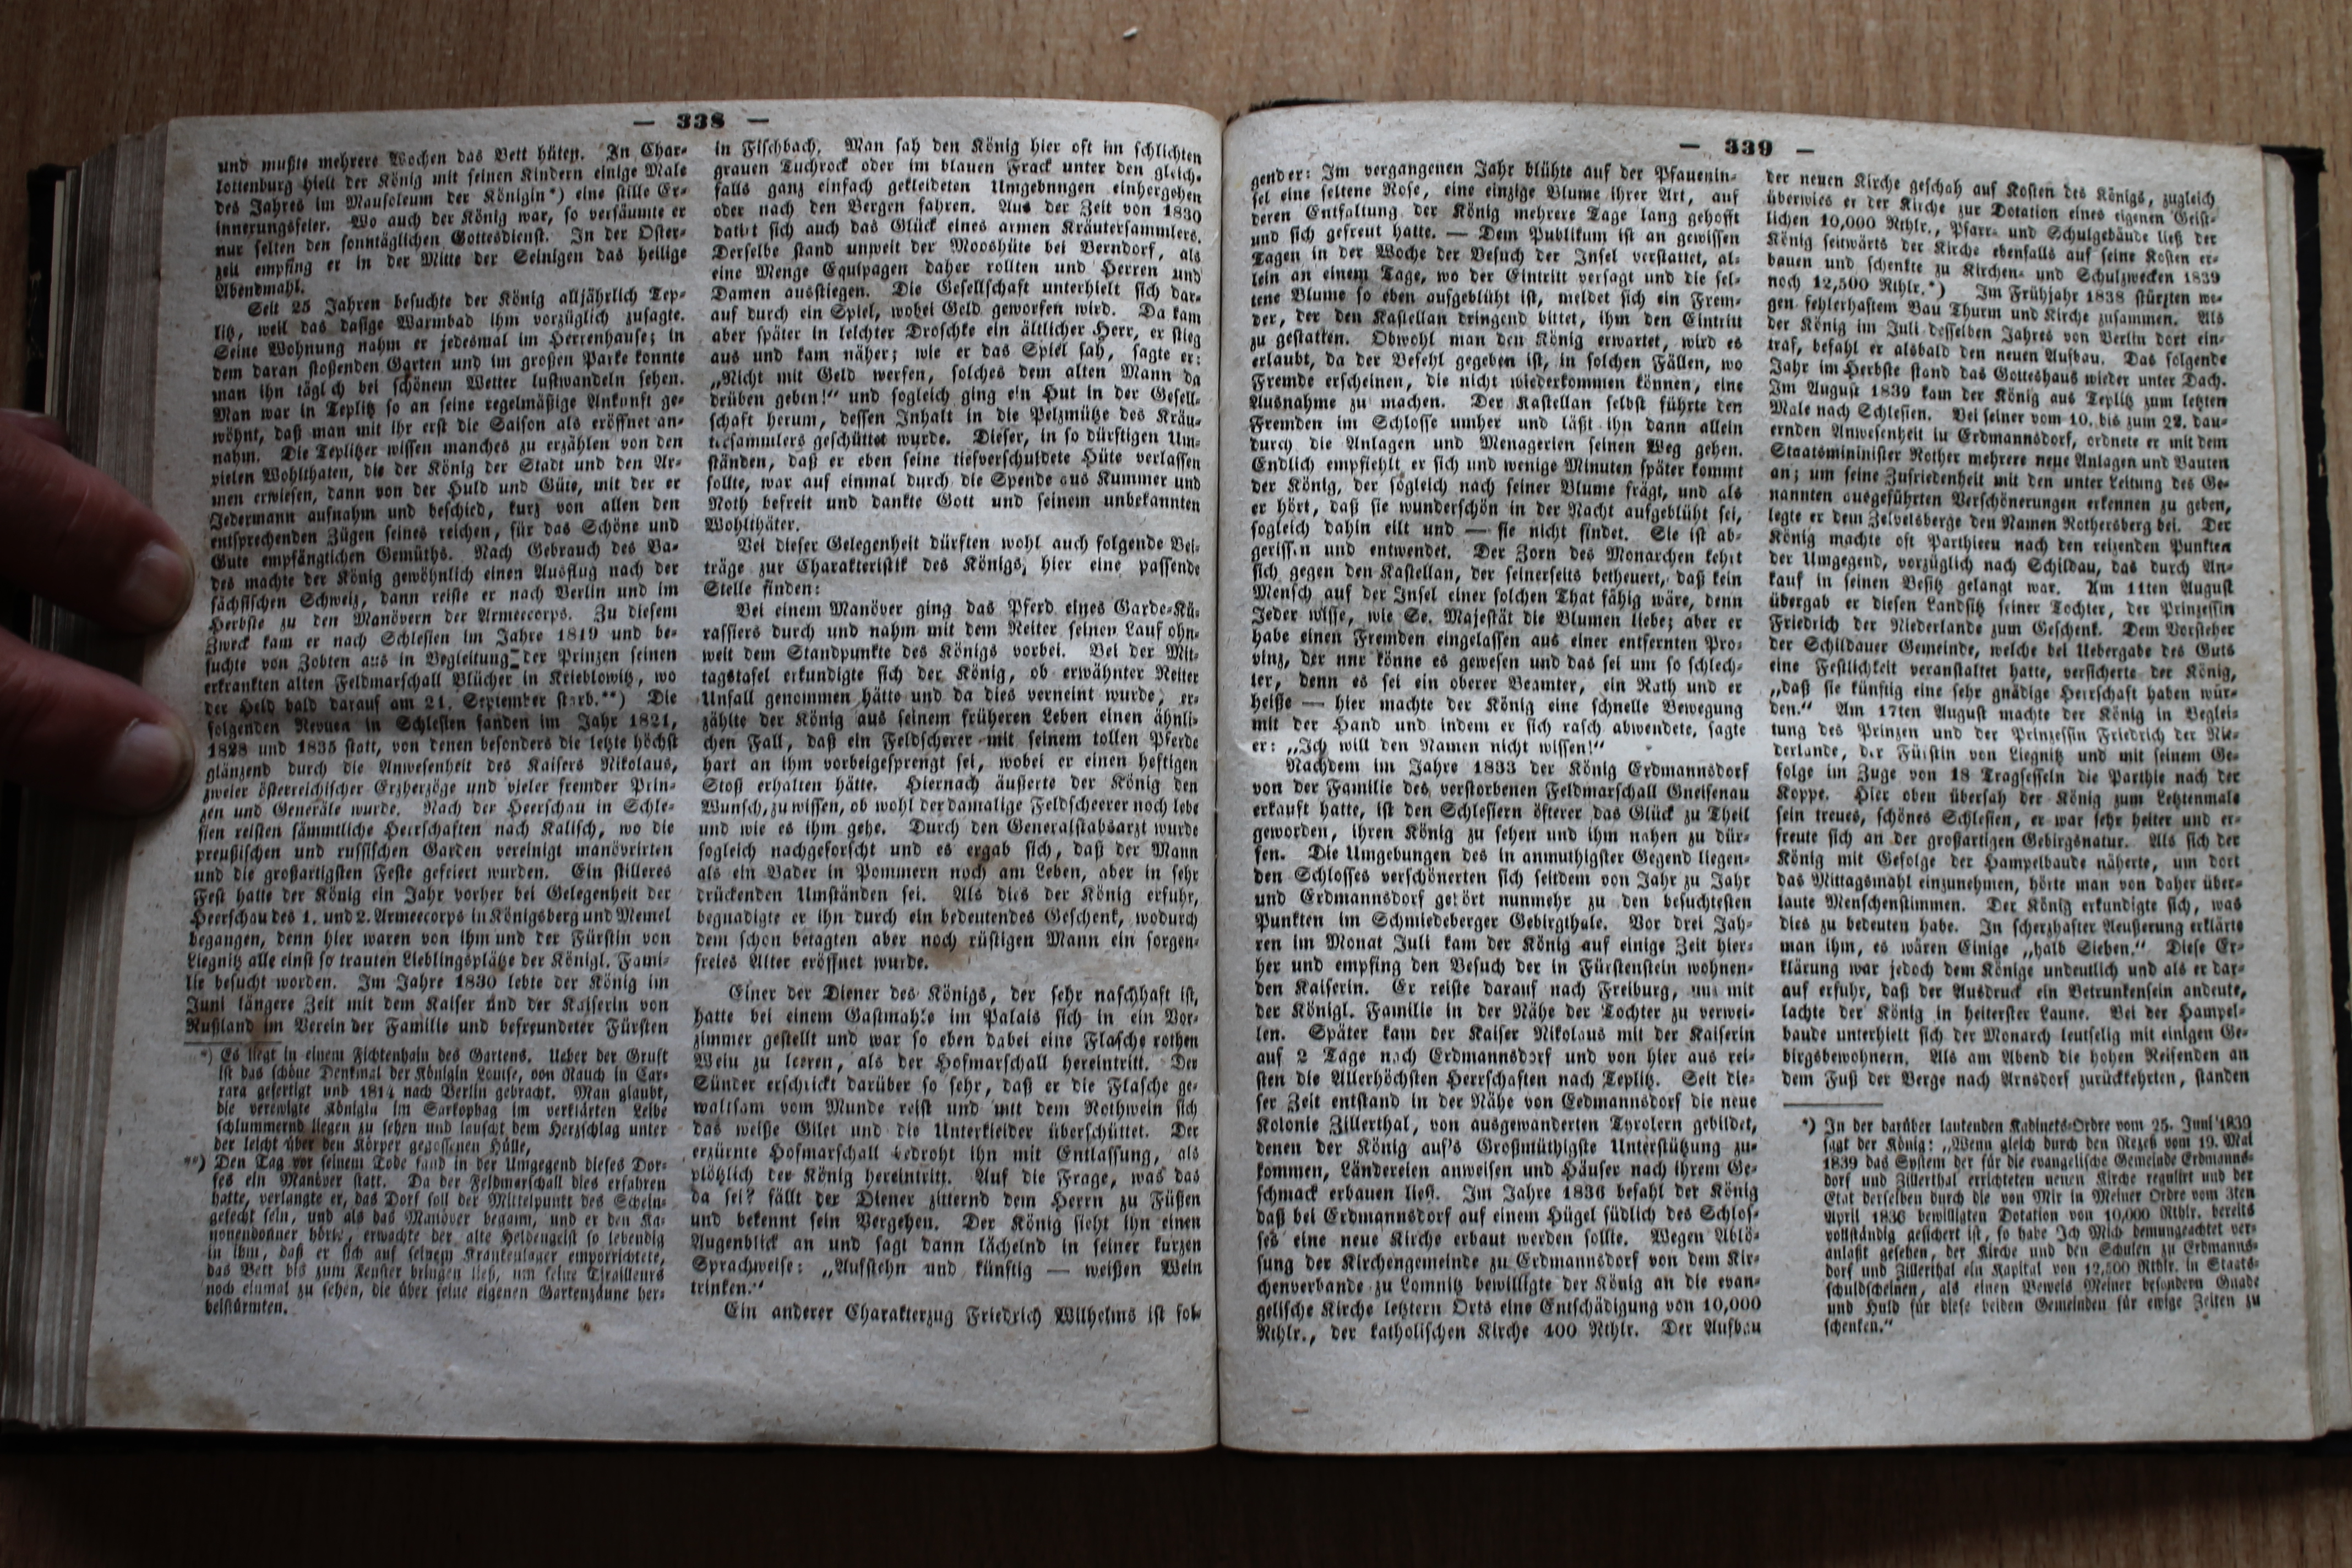 — 338 —
und mußte mehrere Wochen das Bett hüten. In Char-
lottenburg hielt der König mit seinen Kindern einige Male
des Jahres im Mausoleum der Königin*) eine stille Er-
innerungsfeier. Wo auch der König war, so versäumte er
nur selten den sonntäglichen Gottesdienst. In der Oster-
zeit empfing er in der Mitte der Seinigen das heilige
Abendmahl.
Seit 25 Jahren besuchte der König alljährlich Tep-
litz, weil das dasige Warmbad ihm vorzüglich zusagte.
Seine Wohnung nahm er jedesmal im Herrenhause; in
dem daran stoßenden Garten und im großen Parke konnte
man ihn täglich bei schönem Wetter lustwandeln sehen.
Man war in Teplitz so an seine regelmäßige Ankunft ge-
wöhnt, daß man mit ihr erst die Saison als eröffnet an-
nahm. Die Teplitzer wissen manches zu erzählen von den
vielen Wohlthaten, die der König der Stadt und den Ar-
men erwiesen, dann von der Huld und Güte, mit der er
Jedermann aufnahm und beschied, kurz von allen den
entsprechenden Zügen seines reichen, für das Schöne und
Gute empfänglichen Gemüths. Nach Gebrauch des Ba-
des machte der König gewöhnlich einen Ausflug nach der
sächsischen Schweiz, dann reiste er nach Berlin und im
Herbste zu den Manövern der Armeecorps. Zu diesem
Zweck kam er nach Schlesien im Jahre 1819 und be-
suchte von Zobten aus in Begleitung der Prinzen seinen
erkrankten alten Feldmarschall Blücher in Krieblowitz, wo
der Held bald darauf am 21. September starb.**) Die
folgenden Revuen in Schlesien fanden im Jahr 1821,
1828 und 1835 statt, von denen besonders die letzte höchst
glänzend durch die Anwesenheit des Kaisers Nikolaus,
zweier österreichischer Erzherzöge und vieler fremder Prin-
zen und Generäle wurde. Nach der Heerschau in Schle-
sien reisten sämmtliche Herrschaften nach Kalisch, wo die
preußischen und russischen Garden vereinigt manövrirten
und die großartigsten Feste gefeiert wurden. Ein stilleres
Fest hatte der König ein Jahr vorher bei Gelegenheit der
Heerschau des 1. und 2. Armeecorps in Königsberg und Memel
begangen, denn hier waren von ihm und der Fürstin von
Liegnitz alle einst so trauten Lieblingsplätze der Königl. Fami-
lie besucht worden. Im Jahre 1830 lebte der König im
Juni längere Zeit mit dem Kaiser und der Kaiserin von
Rußland im Verein der Familie und befreundeter Fürsten
*) Es liegt in einem Fichtenhain des Gartens. Ueber der Gruft
ist das schöne Denkmal der Königin Louise, von Rauch in Car-
rara gefertigt und 1814 nach Berlin gebracht. Man glaubt,
die verewigte Königin im Sarkophag im verklärten Leibe
schlummernd liegen zu sehen und lauscht dem Herzschlag unter
der leicht über den Körper gegossenen Hülle,
**) Den Tag vor seinem Tode fand in der Umgegend dieses Dor-
fes ein Manöver statt. Da der Feldmarschall dies erfahren
hatte, verlangte er, das Dorf soll der Mittelpunkt des Schein-
gefecht sein, und als das Manöver begann, und er den Ka-
nonendonner hörte, erwachte der alte Heldengeist so lebendig
in ihm, daß er sich auf seinem Krankenlager emporrichtete,
das Bett bis zum Fenster bringen ließ, um seine Tirailleurs
noch einmal zu sehen, die über seine eigenen Gartenzäune her-
beistürmten.
in Fischbach. Man sah den König hier oft im schlichten
grauen Tuchrock oder im blauen Frack unter den gleich-
falls ganz einfach gekleideten Umgebnngen einhergehen
oder nach den Bergen fahren. Aus der Zeit von 1830
datirt sich auch das Glück eines armen Kräutersammlers.
Derselbe stand unweit der Mooshüte bei Berndorf, als
eine Menge Equipagen daher rollten und Herren und
Damen ausstiegen. Die Gesellschaft unterhielt sich dar-
auf durch ein Spiel, wobei Geld geworfen wird. Da kam
aber später in leichter Droschke ein ältlicher Herr, er stieg
aus und kam näher; wie er das Spiel sah, sagte er:
„Nicht mit Geld werfen, solches dem alten Mann da
drüben geben!“ und sogleich ging ein Hut in der Gesell-
schaft herum, dessen Inhalt in die Pelzmütze des Kräu-
tersammlers geschüttet wurde. Dieser, in so dürftigen Um-
ständen, daß er eben seine tiefverschuldete Hüte verlassen
sollte, war auf einmal durch die Spende aus Kummer und
Noth befreit und dankte Gott und seinem unbekannten
Wohlthäter.
Bei dieser Gelegenheit dürften wohl auch folgende Bei-
träge zur Charakteristik des Königs, hier eine passende
Stelle finden:
Bei einem Manöver ging das Pferd eines Garde-Kü-
rassiers durch und nahm mit dem Reiter seinen Lauf ohn-
weit dem Standpunkte des Königs vorbei. Bei der Mit-
tagstafel erkundigte sich der König, ob erwähnter Reiter
Unfall genommen hätte und da dies verneint wurde, er-
zählte der König aus seinem früheren Leben einen ähnli-
chen Fall, daß ein Feldscherer mit seinem tollen Pferde
hart an ihm vorbeigesprengt sei, wobei er einen heftigen
Stoß erhalten hätte. Hiernach äußerte der König den
Wunsch, zu wissen, ob wohl der damalige Feldscheerer noch lebe
und wie es ihm gehe. Durch den Generalstabsarzt wurde
sogleich nachgeforscht und es ergab sich, daß der Mann
als ein Bader in Pommern noch am Leben, aber in sehr
drückenden Umständen sei. Als dies der König erfuhr,
begnadigte er ihn durch ein bedeutendes Geschenk, wodurch
dem schon betagten aber noch rüstigen Mann ein sorgen-
freies Alter eröffnet wurde.
Einer der Diener des Königs, der sehr naschhaft ist,
hatte bei einem Gastmahle im Palais sich in ein Vor-
zimmer gestellt und war so eben dabei eine Flasche rothen
Wein zu leeren, als der Hofmarschall hereintritt. Der
Sünder erschrickt darüber so sehr, daß er die Flasche ge-
waltsam vom Munde reist und mit dem Rothwein sich
das weiße Gilet und die Unterkleider überschüttet. Der
erzürnte Hofmarschall bedroht ihn mit Entlassung, als
plötzlich der König hereintritt. Auf die Frage, was das
da sei? fällt der Diener zitternd dem Herrn zu Füßen
und bekennt sein Vergehen. Der König sieht ihn einen
Augenblick an und sagt dann lächelnd in seiner kurzen
Sprachweise: „Aufstehn und künftig — weißen Wein
trinken.“
Ein anderer Charakterzug Friedrich Wilhelms ist fol-
— 339 —
gender: Im vergangenen Jahr blühte auf der Pfauenin-
sel eine seltene Rose, eine einzige Blume ihrer Art, auf
deren Entfaltung der König mehrere Tage lang gehofft
und sich gefreut hatte. — Dem Publikum ist an gewissen
Tagen in der Woche der Besuch der Insel verstattet, al-
lein an einem Tage, wo der Eintritt versagt und die sel-
tene Blume so eben aufgeblüht ist, meldet sich ein Frem-
der, der den Kastellan dringend bittet, ihm den Eintritt
zu gestatten. Obwohl man den König erwartet, wird es
erlaubt, da der Befehl gegeben ist, in solchen Fällen, wo
Fremde erscheinen, die nicht wiederkommen können, eine
Ausnahme zu machen. Der Kastellan selbst führte den
Fremden im Schlosse umher und läßt ihn dann allein
durch die Anlagen und Menagerien seinen Weg gehen.
Endlich empfiehlt er sich und wenige Minuten später kommt
der König, der sogleich nach seiner Blume frägt, und als
er hört, daß sie wunderschön in der Nacht aufgeblüht sei,
sogleich dahin eilt und — sie nicht findet. Sie ist ab-
gerissen und entwendet. Der Zorn des Monarchen kehrt
sich gegen den Kastellan, der seinerseits betheuert, daß kein
Mensch auf der Insel einer solchen That fähig wäre, denn
Jeder wisse, wie Se. Majestät die Blumen liebe; aber er
habe einen Fremden eingelassen aus einer entfernten Pro-
vinz, der nnr könne es gewesen und das sei um so schlech-
ter, denn es sei ein oberer Beamter, ein Rath und er
heiße — hier machte der König eine schnelle Bewegung
mit der Hand und indem er sich rasch abwendete, sagte
er: „Ich will den Namen nicht wissen!“
Nachdem im Jahre 1833 der König Erdmannsdorf
von der Familie des verstorbenen Feldmarschall Gneisenau
erkauft hatte, ist den Schlesiern öfterer das Glück zu Theil
geworden, ihren König zu sehen und ihm nahen zu dür-
fen. Die Umgebungen des in anmuthigster Gegend liegen-
den Schlosses verschönerten sich seitdem von Jahr zu Jahr
und Erdmannsdorf gehört nunmehr zu den besuchtesten
Punkten im Schmiedeberger Gebirgthale. Vor drei Jah-
ren im Monat Juli kam der König auf einige Zeit hier-
her und empfing den Besuch der in Fürstenstein wohnen-
den Kaiserin. Er reiste darauf nach Freiburg, um mit
der Königl. Familie in der Nähe der Tochter zu verwei-
len. Später kam der Kaiser Nikolaus mit der Kaiserin
auf 2 Tage nach Erdmannsdorf und von hier aus rei-
sten die Allerhöchsten Herrschaften nach Teplitz. Seit die-
ser Zeit entstand in der Nähe von Eedmannsdorf die neue
Kolonie Zillerthal, von ausgewanderten Tyrolern gebildet,
denen der König auf's Großmüthigste Unterstützung zu-
kommen, Ländereien anweisen und Häuser nach ihrem Ge-
schmack erbauen ließ. Im Jahre 1836 befahl der König
daß bei Erdmannsdorf auf einem Hügel südlich des Schlos-
ses eine neue Kirche erbaut werden sollte. Wegen Ablö-
sung der Kirchengemeinde zu Erdmannsdorf von dem Kir-
chenverbande zu Lomnitz bewilligte der König an die evan-
gelische Kirche letztern Orts eine Entschädigung von 10,000
Rthlr., der katholischen Kirche 400 Rthlr. Der Aufbau
der neuen Kirche geschah auf Kosten des Königs, zugleich
überwies er der Kirche zur Dotation eines eigenen Geist-
lichen 10,000 Rthlr., Pfarr- und Schulgebäude ließ der
König seitwärts der Kirche ebenfalls auf seine Kosten er-
bauen und schenkte zu Kirchen- und Schulzwecken 1839
noch 12,500 Rthlr.*) Im Frühjahr 1838 stürzten we-
gen fehlerhaftem Bau Thurm und Kirche zusammen. Als
der König im Juli desselben Jahres von Berlin dort ein-
traf, befahl er alsbald den neuen Aufbau. Das folgende
Jahr im Herbste stand das Gotteshaus wieder unter Dach.
Im August 1839 kam der König aus Teplitz zum letzten
Male nach Schlesien. Bei seiner vom 10. bis zum 22. dau-
ernden Anwesenheit in Erdmannsdorf, ordnete er mit dem
Staatsmininister Rother mehrere neue Anlagen und Bauten
an; um seine Zufriedenheit mit den unter Leitung des Ge-
nannten ausgeführten Verschönerungen erkennen zu geben,
legte er dem Zelvelsberge den Namen Rothersberg bei. Der
König machte oft Parthieen nach den reizenden Punkten
der Umgegend, vorzüglich nach Schildau, das durch An-
kauf in seinen Besitz gelangt war. Am 11ten August
übergab er diesen Landsitz seiner Tochter, der Prinzessin
Friedrich der Niederlande zum Geschenk. Dem Vorsteher
der Schildauer Gemeinde, welche bei Uebergabe des Guts
eine Festlichkeit veranstaltet hatte, versicherte der König,
„daß sie künftig eine sehr gnädige Herrschaft haben wür-
den.“ Am 17ten August machte der König in Beglei-
tung des Prinzen und der Prinzessin Friedrich der Nie-
derlande, der Fürstin von Liegnitz und mit seinem Ge-
folge im Zuge von 18 Tragsesseln die Parthie nach der
Koppe. Hier oben übersah der König zum Letztenmale
sein treues, schönes Schlesien, er war sehr heiter und er-
freute sich an der großartigen Gebirgsnatur. Als sich der
König mit Gefolge der Hampelbaude näherte, um dort
das Mittagsmahl einzunehmen, hörte man von daher über-
laute Menschenstimmen. Der König erkundigte sich, was
dies zu bedeuten habe. In scherzhafter Aeußerung erklärte
man ihm, es wären Einige „halb Sieben.“ Diese Er-
klärung war jedoch dem Könige undeutlich und als er dar-
auf erfuhr, daß der Ausdruck ein Betrunkensein andeute,
lachte der König in heiterster Laune. Bei der Hampel-
baude unterhielt sich der Monarch leutselig mit einigen Ge-
birgsbewohnern. Als am Abend die hohen Reisenden an
dem Fuß der Berge nach Arnsdorf zurückkehrten, standen
*) In der darüber lautenden Kabinets-Ordre vom 25. Juni 1839
sagt der König: „Wenn gleich durch den Rezeß vom 19. Mai
1839 das System der für die evangelische Gemeinde Erdmanns-
dorf und Zillerthal errichteten neuen Kirche regulirt und der
Etat derselben durch die von Mir in Meiner Ordre vom 3ten
April 1836 bewilligten Dotation von 10,000 Rthlr. bereits
vollständig gesichert ist, so habe Ich Mich demungeachtet ver-
anlaßt gesehen, der Kirche und den Schulen zu Erdmanns-
dorf und Zillerthal ein Kapital von 12,500 Rthlr. in Staats-
schuldscheinen, als einen Beweis Meiner besondern Gnade
und Huld für diese beiden Gemeinden für ewige Zeiten zu
schenken.“